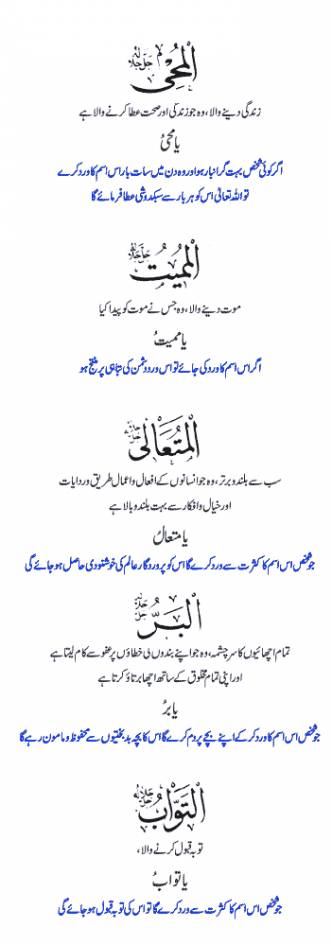 المحی جل جلالہ
زندگی دینے والا، وہ جو زندگی اور صحت عطا کرنے والا ہے
یا محیُ
اگر کوئی شخص بہت گرانبار ہو اور وہ دن میں سات بار اس اسم کا ورد کرے
تو اللہ تعالٰی اس کو ہر بار سے سبکدوشی عطا فرمائے گا
الممیت جل جلالہ
موت دینے والا، وہ جس نے موت کو پیدا کیا
یا ممیتُ
اگر اس اسم کا ورد کی جائے تو اس ورد دشمن کی تباہی پر منتج ہو
المتعالی جل جلالہ
سب سے بلند و برتر، وہ جو انسانوں کے افعال و اعمال طریق و ردایات
اور خیال و افکار سے بہت بلند و بالا ہے
یا متعالُ
جو شخص اس اسم کا کثرت سے ورد کرے گا اس کو پروردگار عالم کی خوشنودی حاصل ہو جائے گی
البرُّ جل جلالہ
تمام اچھائیوں کا سرچشمہ، وہ جو اپنے بندوں کی خطاؤں پر عفو سے کام لیتا ہے
اور اپنی تمام مخلوق کے ساتھ اچھا برتاؤ کرتا ہے
یا برُ
جو شخص اس اسم کا ورد کر کے اپنے بچے پر دم کرے گا اس کا بچہ بدبختیوں سے محفوظ و مامون رہے گا
التوابُ جل جلالہ
توبہ قبول کرنے والا،
یا توابُ
جو شخص اس اسم کا کثرت سے ورد کرے گا تو اس کی توبہ قبول ہو جائے گی